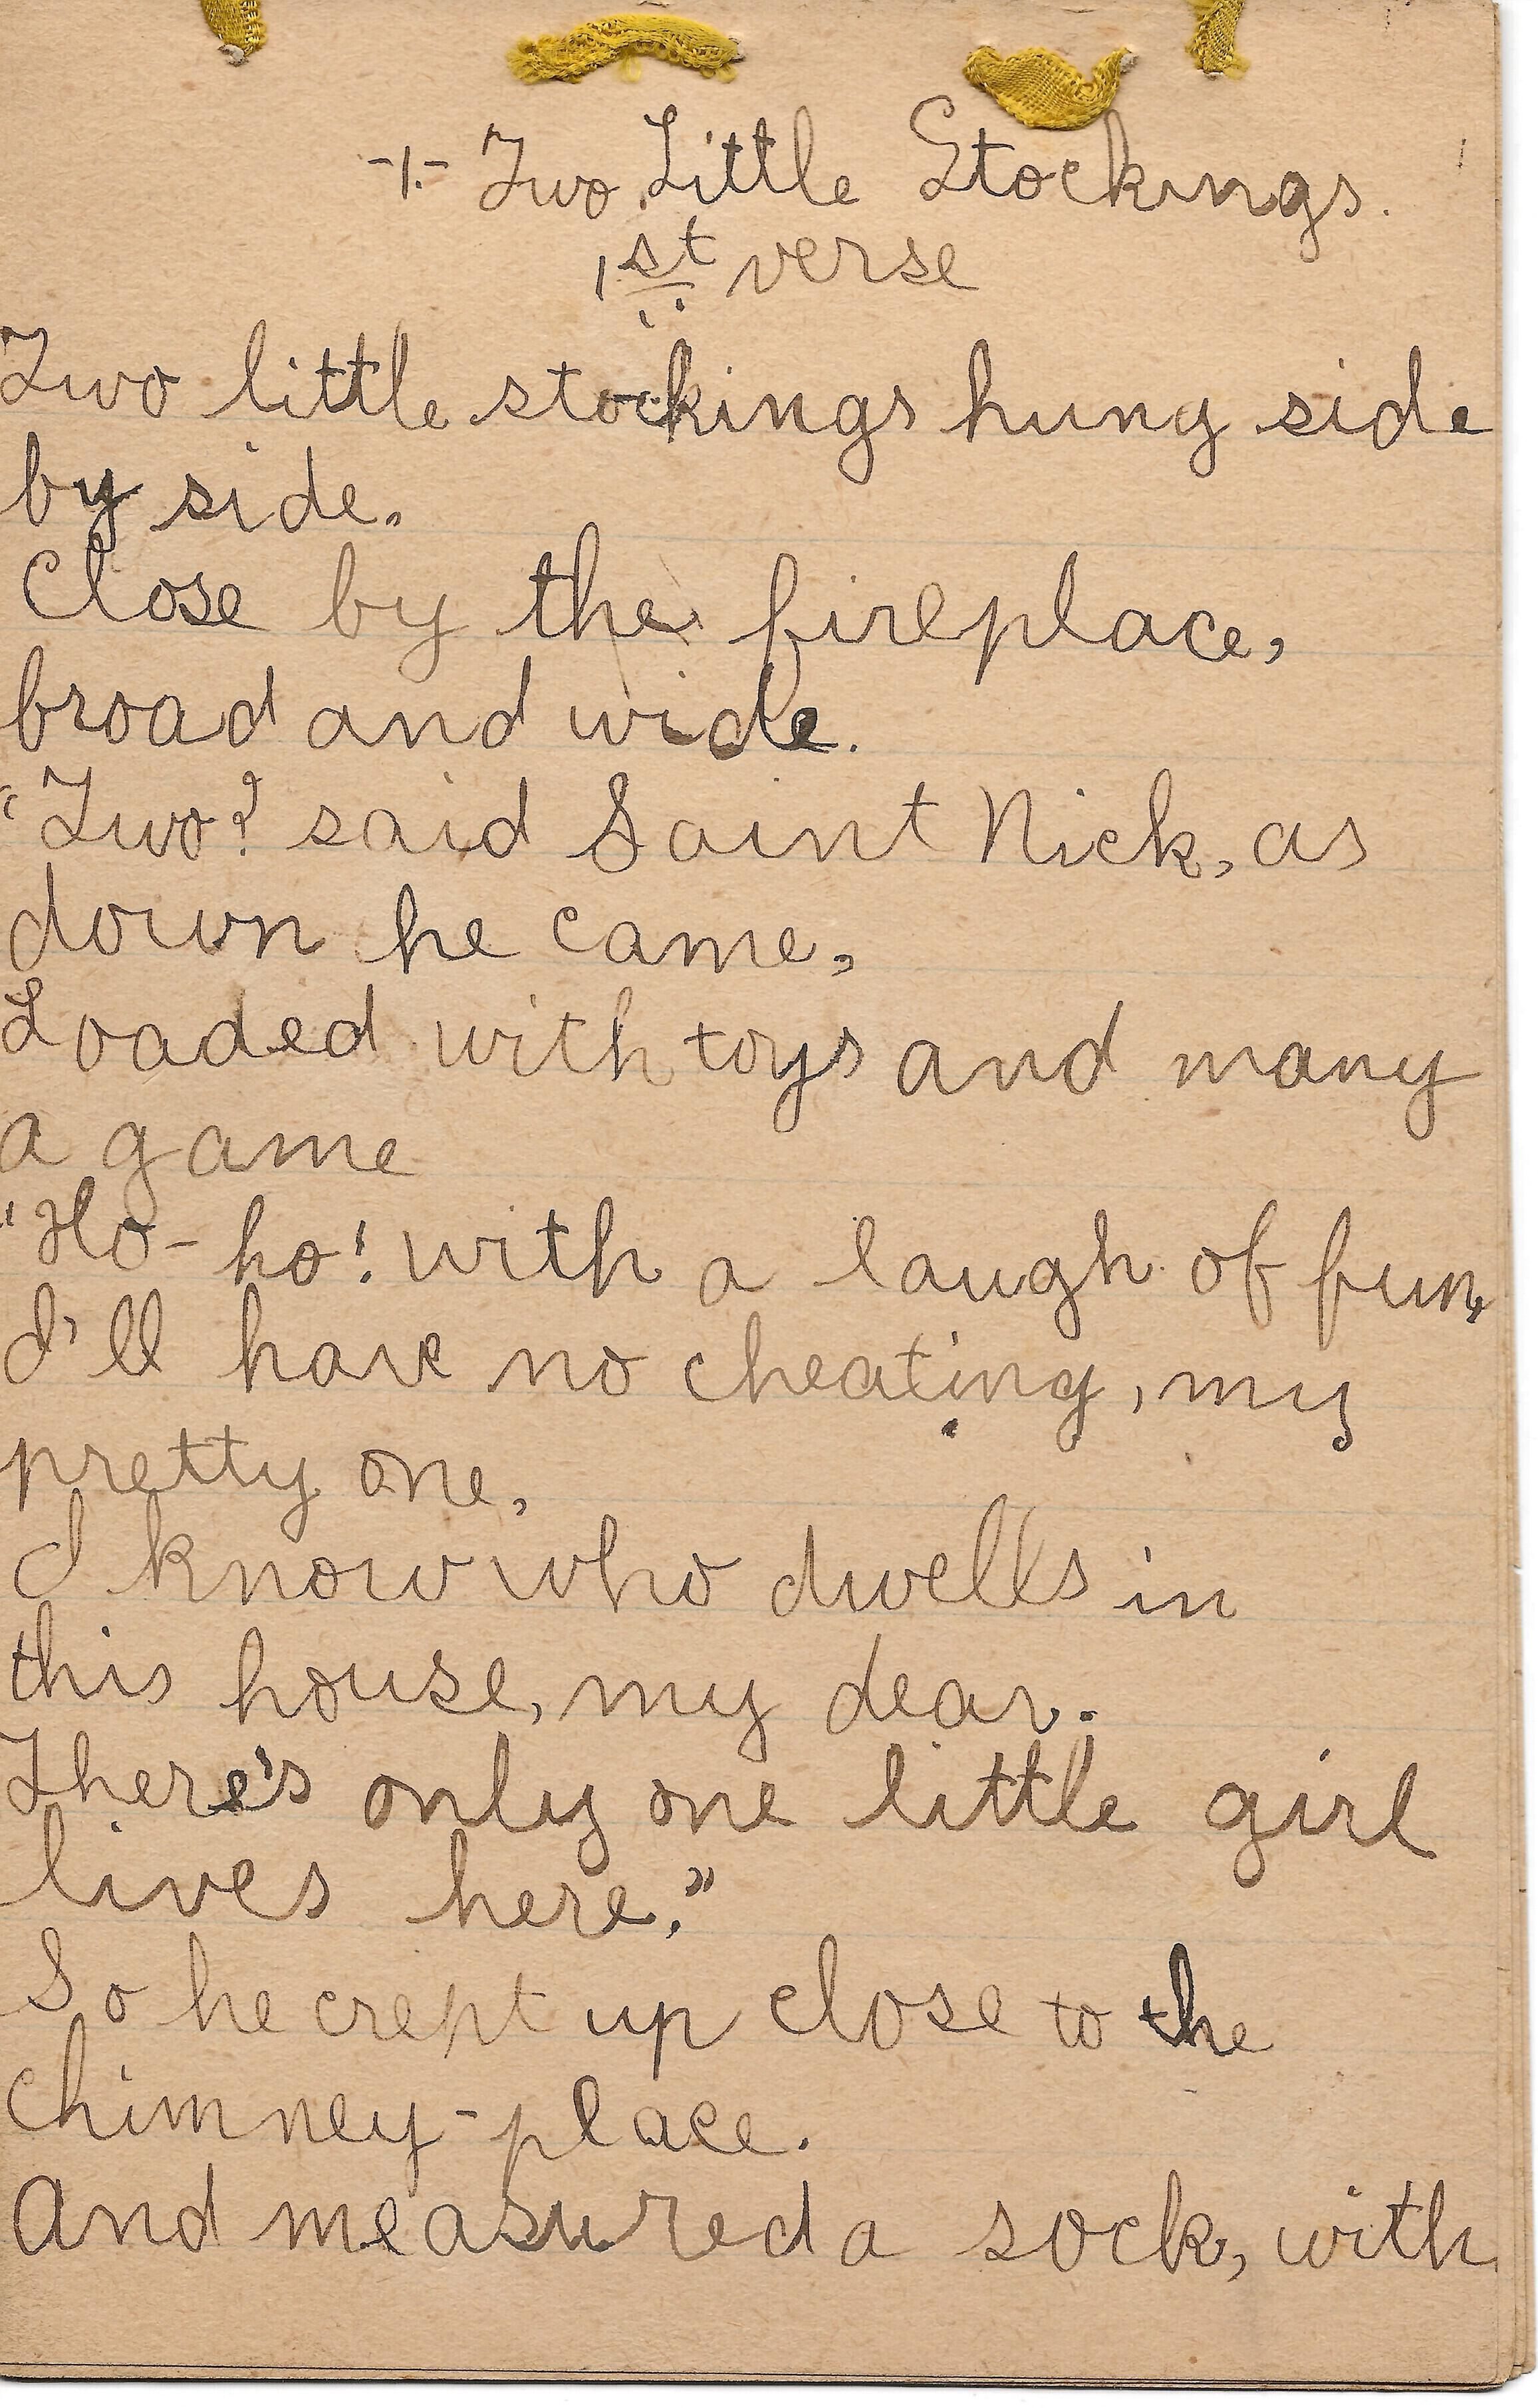 -1.- Two Little Stockings.
1st verse
Two little stockings hung side
by side.
Close by the fireplace,
broad and wide.
"Two? said Saint Nick, as
down he came,
Loaded with toys and many
a game
"Ho-ho! with a laugh of fun,
I'll have no cheating, my
pretty one,
I know who dwells in
this house, my dear.
There's only one little girl
lives here."
So he crept up close to the
chimney-place.
And measured a sock, with